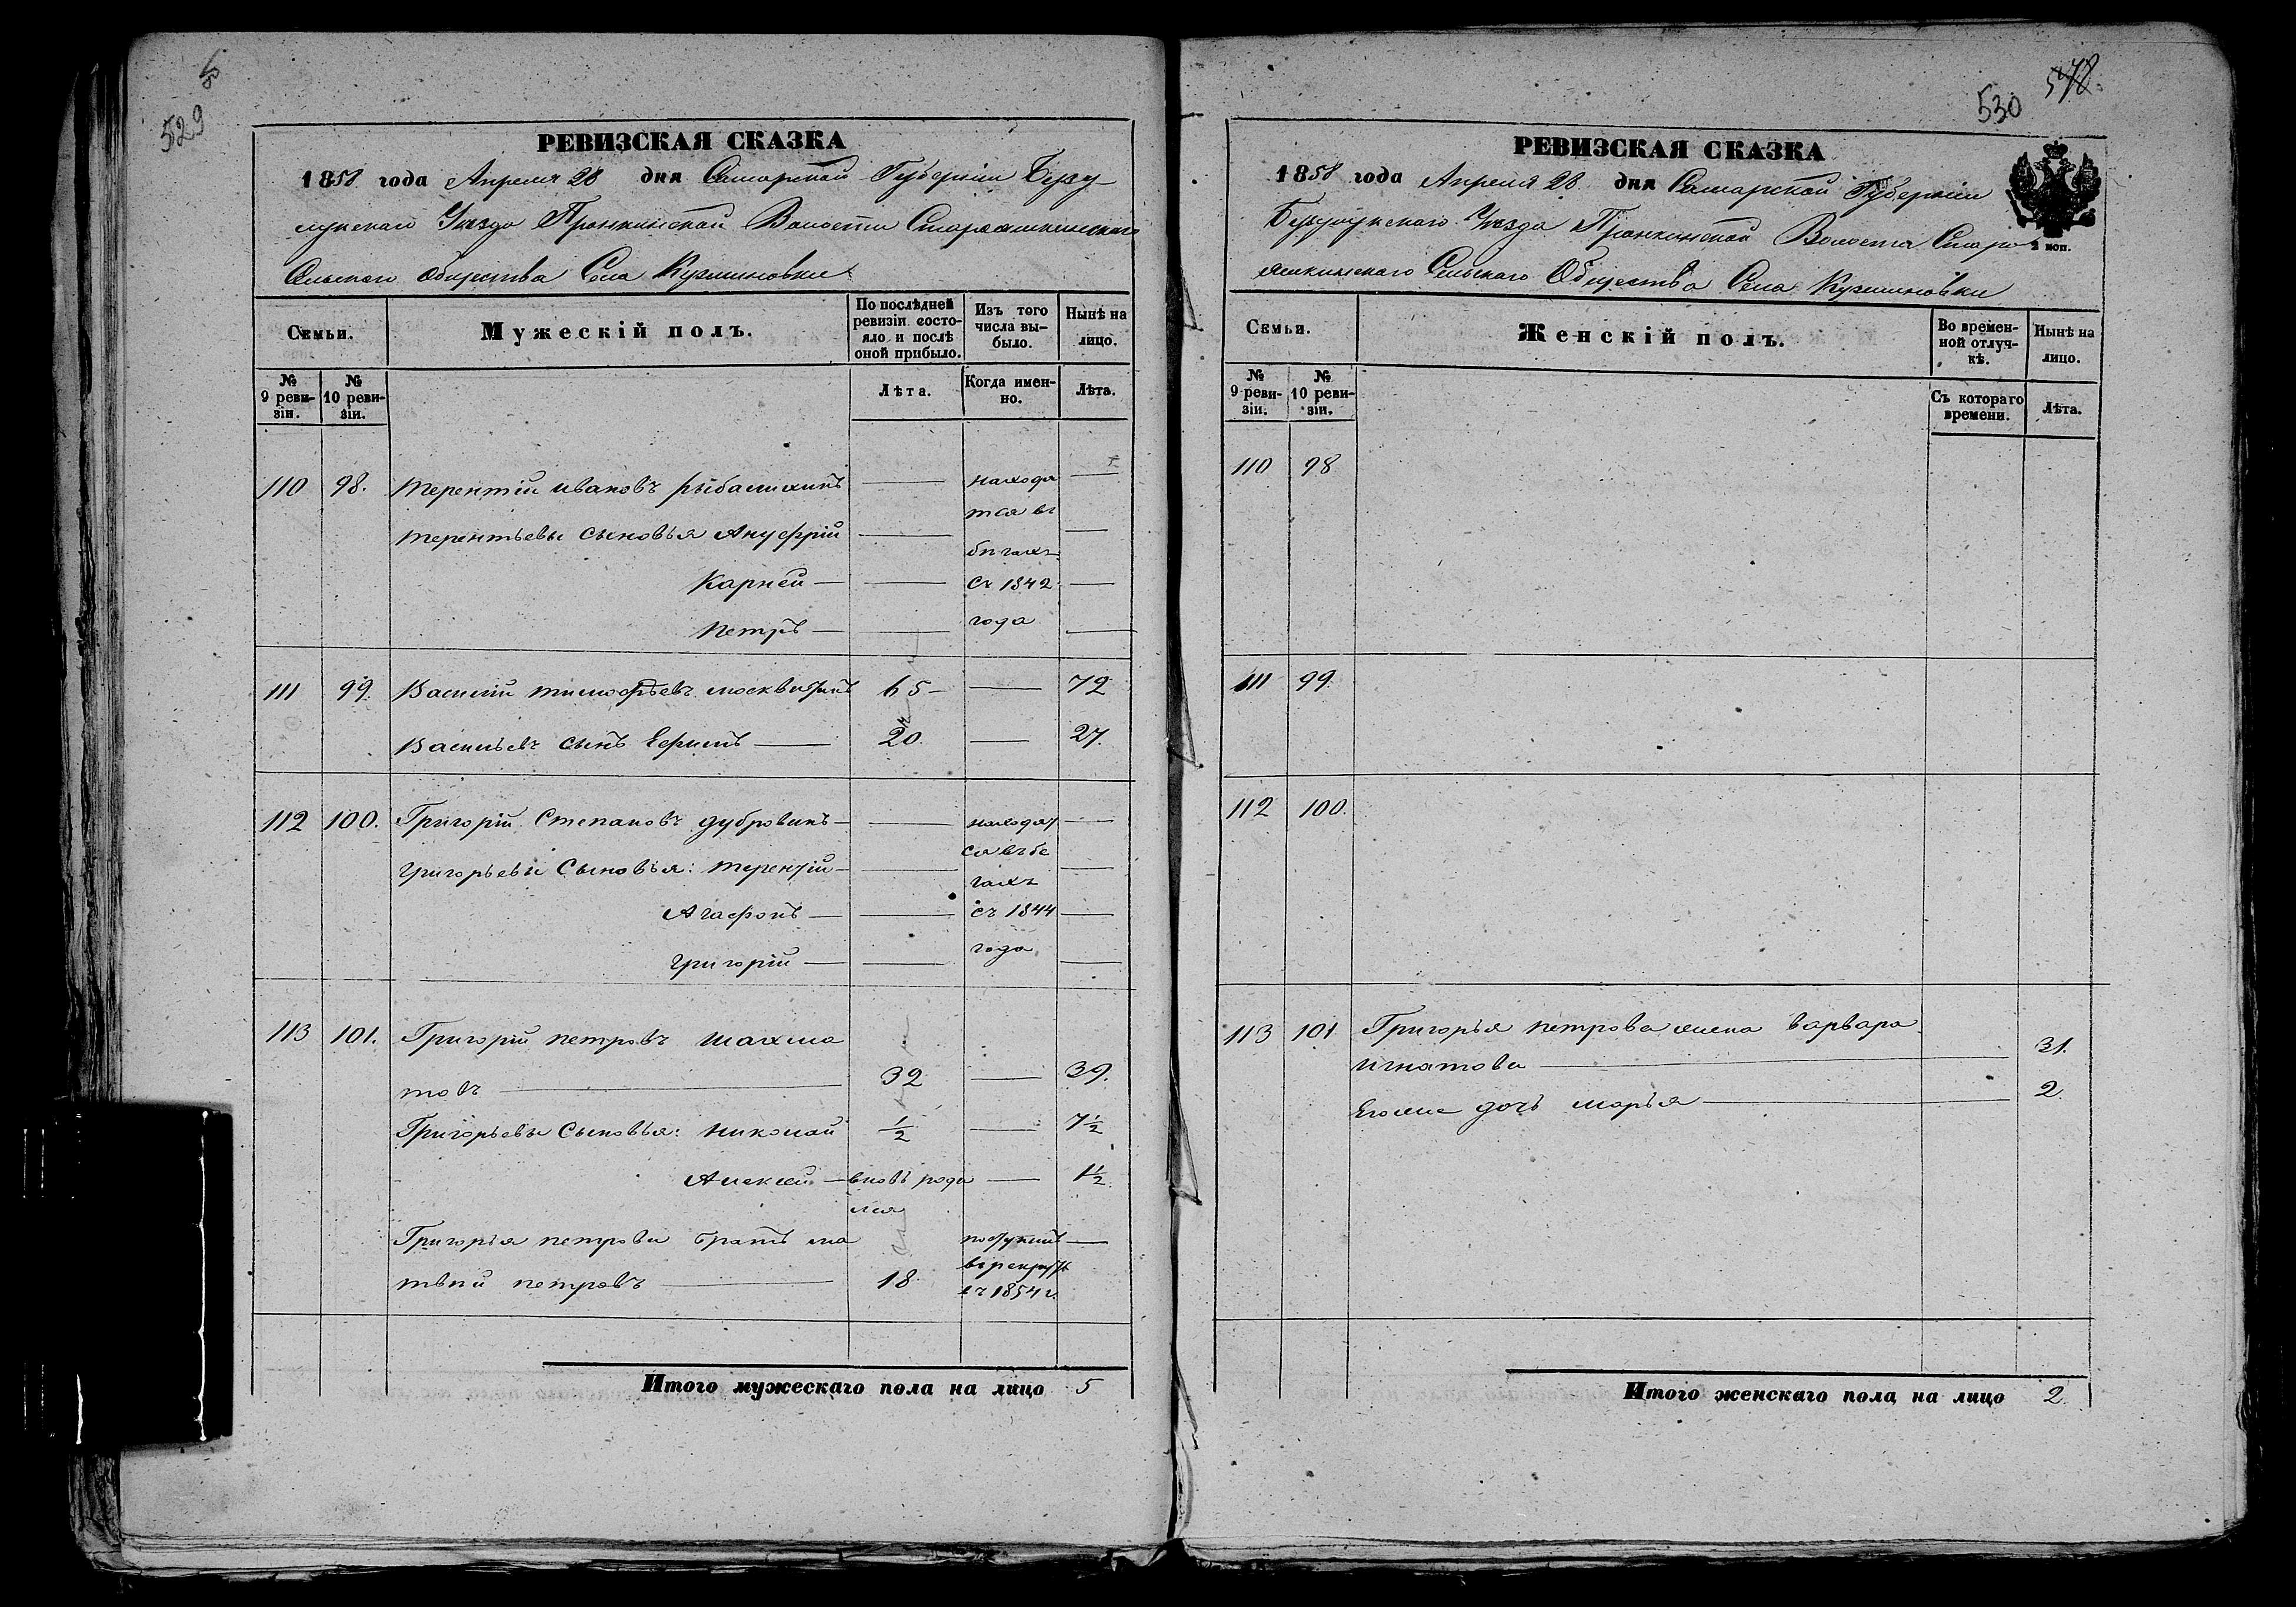 529
РЕВИЗСКАЯ СКАЗКА
1858 года Апреля 28 дня Самарской Губернии Бузу-
лукскаго Уезда Пронкинской Волости Староашкинскаго
Сельскаго Общества Села Кузминовки
Семьи.
Мужескій полъ.
По послѣдней ревизіи состо-яло и послѣ оной прибыло.
Изъ того числа вы-было.
Нынѣ на лицо.
№ 9 реви-зіи.
№ 10 реви-зіи.
Лѣта.
Когда имен-но.
Лѣта.
110 98. Терентій Ивановъ Рыбалкинъ — находя —
тся въ
Терентьевы сыновья Ануфрій — —
бѣгахъ
Карней — — съ 1842 —
Петръ — — года —
111 99. Василий Тимофѣевъ Москвитинъ 65 — — 72
Васильевъ сынъ Ефимъ — 20. — 27.
112 100. Григорій Степановъ Дубровинъ — — находят —
ся въ бе
Григорьевы Сыновья: Терентій — — —
гахъ
Агафонъ — — съ 1844 —
Григорій — — года —
113 101. Григорій Петровъ Шахма
товъ — 32 — 39.
Григорьевы Сыновья: Николай 1/2 — 7 1/2
Алексей — вновь роди — 1 1/2
лся
Григорья Петрова братъ Ма поступилъ —
твѣй Петровъ — 18. въ рекруты
съ 1854 г.
Итого мужескаго пола на лицо 5
530 578.
РЕВИЗСКАЯ СКАЗКА
1858 года Апреля 28 дня Самарской Губерніи
Бузулукскаго Уезда Пронкинской Волости Старо
ашкинскаго Сельскаго Общества Села Кузминовки
2 коп.
Семьи.
Женскій полъ.
Во времен-ной отлуч-кѣ.
Нынѣ на лицо.
№ 9 реви-зіи.
№ 10 реви-зіи.
Съ котораго времени.
Лѣта.
110 98
111 99.
112 100.
113 101 Григорья Петрова жена Варвара
Игнатова — 31.
Егоже дочь Марья — 2.
Итого женскаго пола на лицо 2.